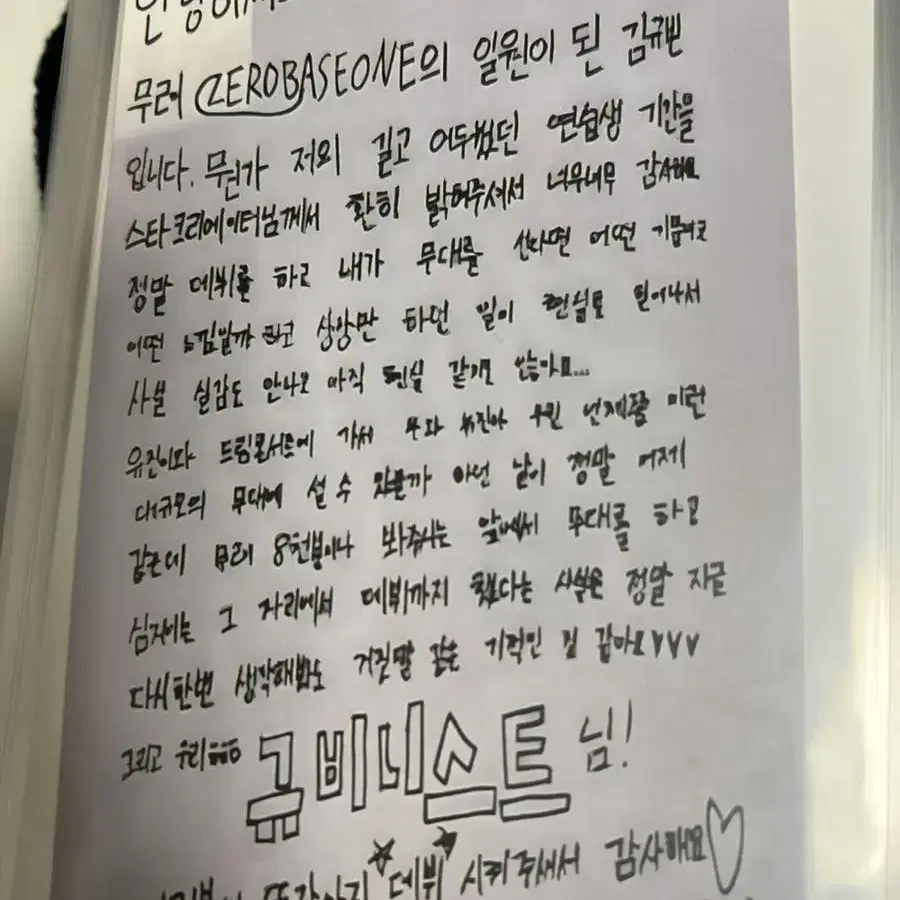 안녕하세요
무려 ZEROBASEONE의 일원이 된 김규빈
입니다. 뭔가 저의 길고 어두웠던 연습생 기간을
스타크리에이터님께서 환히 밝혀주셔서 너무너무 감사해요
정말 데뷔를 하고 내가 무대를 선다면 어떤 기분이고
어떤 느낌일까 하고 상상만 하던 일이 현실로 일어나서
사실 실감도 안나고 아직 현실 같지도 않아요...
유진이와 드림콘서트에 가서 우와 유진아 우린 언제쯤 이런
대규모의 무대에 설 수 있을까 하던 날이 정말 어제
같은데 무려 8천분이나 봐주시는 앞에서 무대를 하고
심지어는 그 자리에서 데뷔까지 했다는 사실은 정말 지금
다시한번 생각해봐도 거짓말 같은 기적인 것 같아요♥♥♥
그리고 우리 규비니스트 님!
데뷔 시켜주셔서 감사해요♡